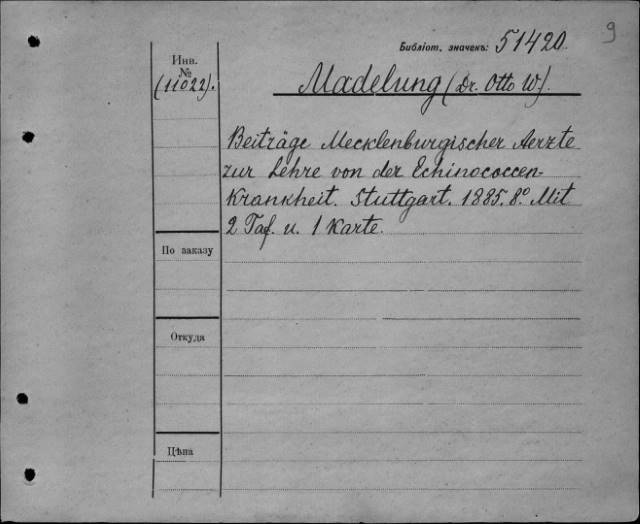 9
Библіот. значекъ: 51420.
Инв.
№
(11022).
Madelung (Dr. Otto W).
Beiträge Mecklenburgischer Aerzte
zur Lehre von der Echinococcen-
Krankheit. Stuttgart. 1885. 8º. Mit
2 Taf. u. 1 Karte.
По заказу
Откуда
Цѣна